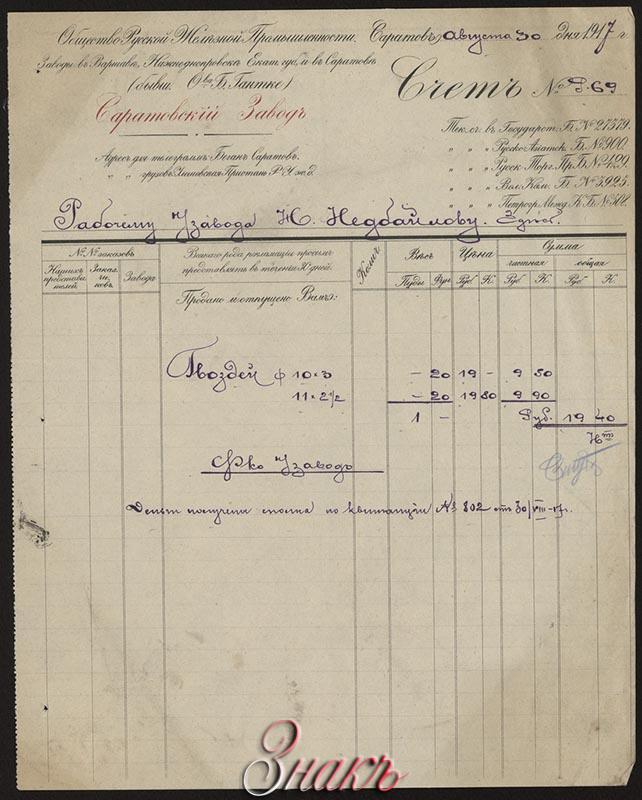 Общество Русской Желѣзной Промышленности. Саратовъ, Августа 30 дня 1917 г.
Заводы въ Варшавѣ, Нижнеднепровскѣ Екат. губ. и въ Саратовѣ
(бывш. О-ва Б. Гантке)
Счетъ № Р. 69
Саратовскій Заводъ
Адресъ для телеграммъ: Беганъ Саратовъ.
" " грузовъ: Улешевская Пристань Р. У. ж. д.
Тек. сч. въ Государст. Б. № 27579.
" " " Русско-Азіатск. Б. № 900.
" " " Русск. Торг. Пр. Б. № 420.
" " " Волж. Кам. Б. № 3925.
" " " Петрогр. Межд. К. Б. № 302.
Рабочему У/завода Н. Недбайлову. Здѣсь.
№ № заказовъ
Нашихъ представителей.
Заказчиковъ.
Завода
Всякаго рода рекламаціи просимъ представлять въ теченіи 10 дней.
Продано и отпущено Вамъ:
Колич.
Вѣсъ
Пуды Фун.
Цѣна
Руб. К.
Сумма
частная общая
Руб. К. Руб. К.
Гвоздей ф 10 × 3 – 20 19 – 9 50
11 × 2 1/2 – 20 19 80 9 90
1 – Руб. 19 40
Н-то
Фко У/заводъ
Деньги получены сполна по квитанціи № 802 отъ 30/VIII-17 г.
Знакъ